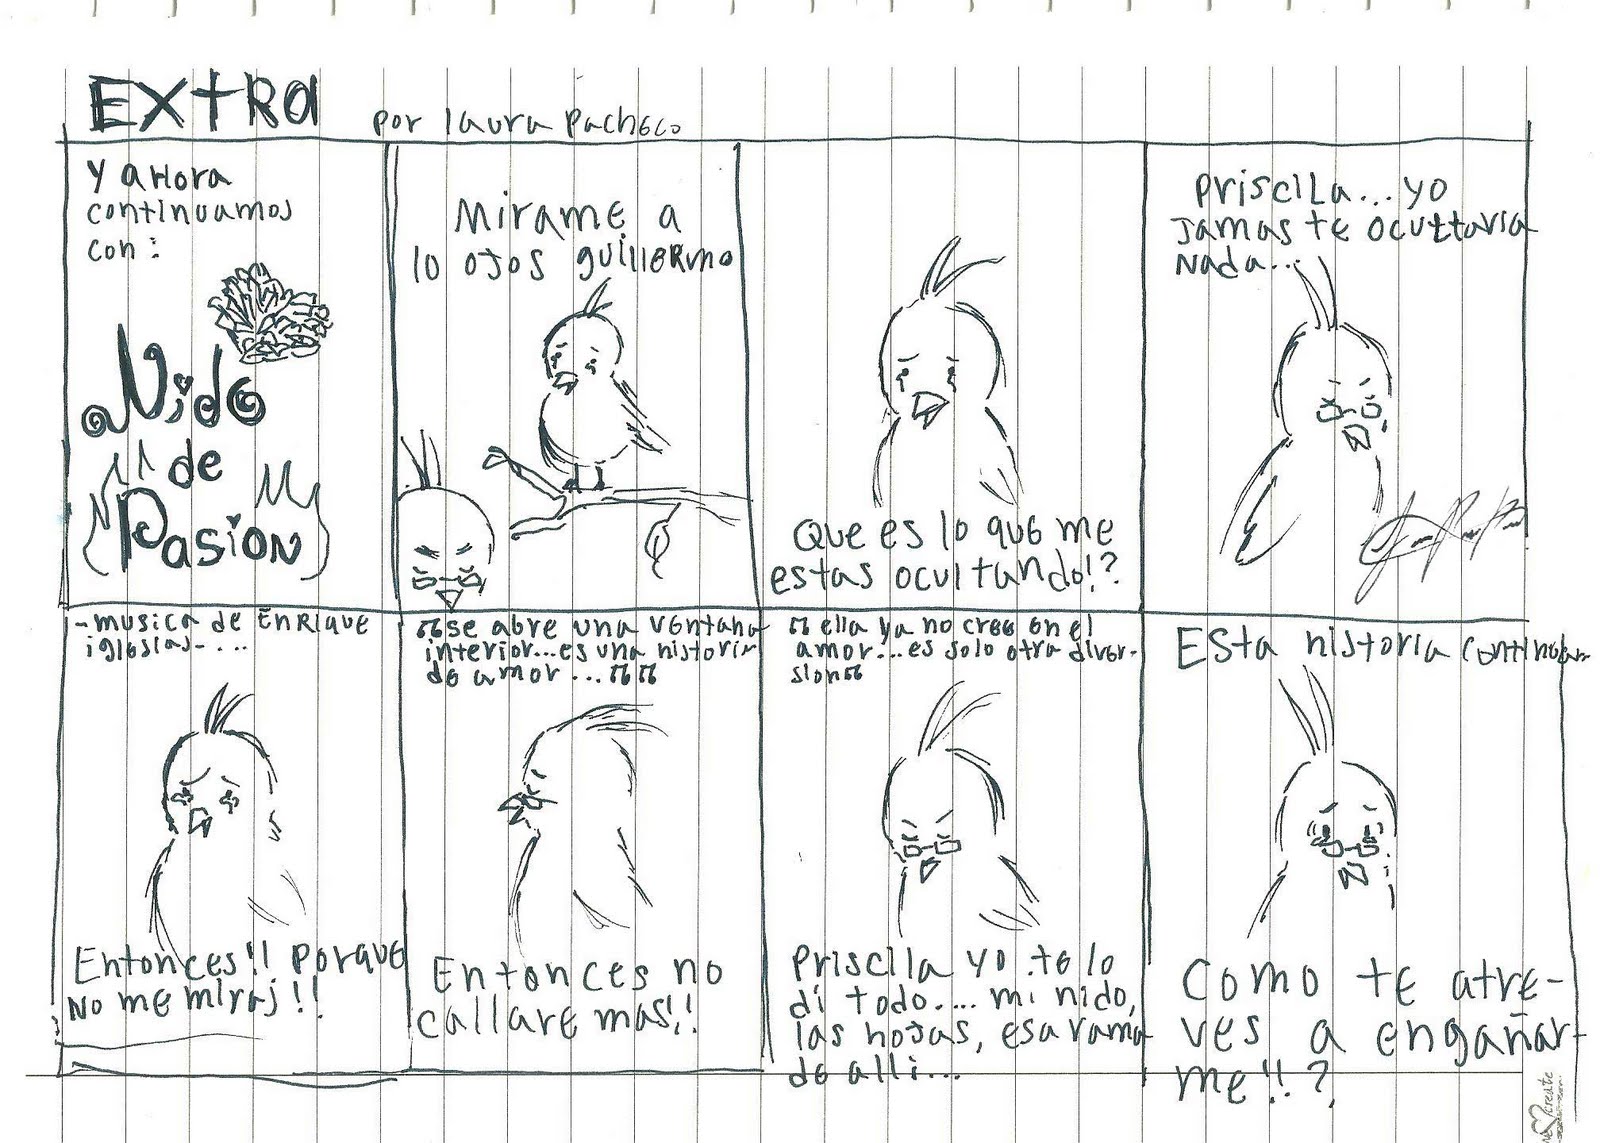 EXTRA
por laura Pacheco
Y aHora
continuamos
con:
Nido
de
Pasion
Mirame a
lo ojos guillermo
Que es lo que me
estas ocultando!?
Priscila... yo
Jamas te ocultaria
Nada...
-musica de Enrique
iglesias-...
Entonces!! Porque
No me miras!!
se abre una ventana
interior...es una historia
de amor...
Entonces no
callare mas!!
ella ya no cree en el
amor...es solo otra diver-
sion
Priscila yo te lo
di todo.... mi nido,
las hojas, esa rama
de alli...
Esta historia continuara
Como te atre-
ves a engañar-
me!!?
create